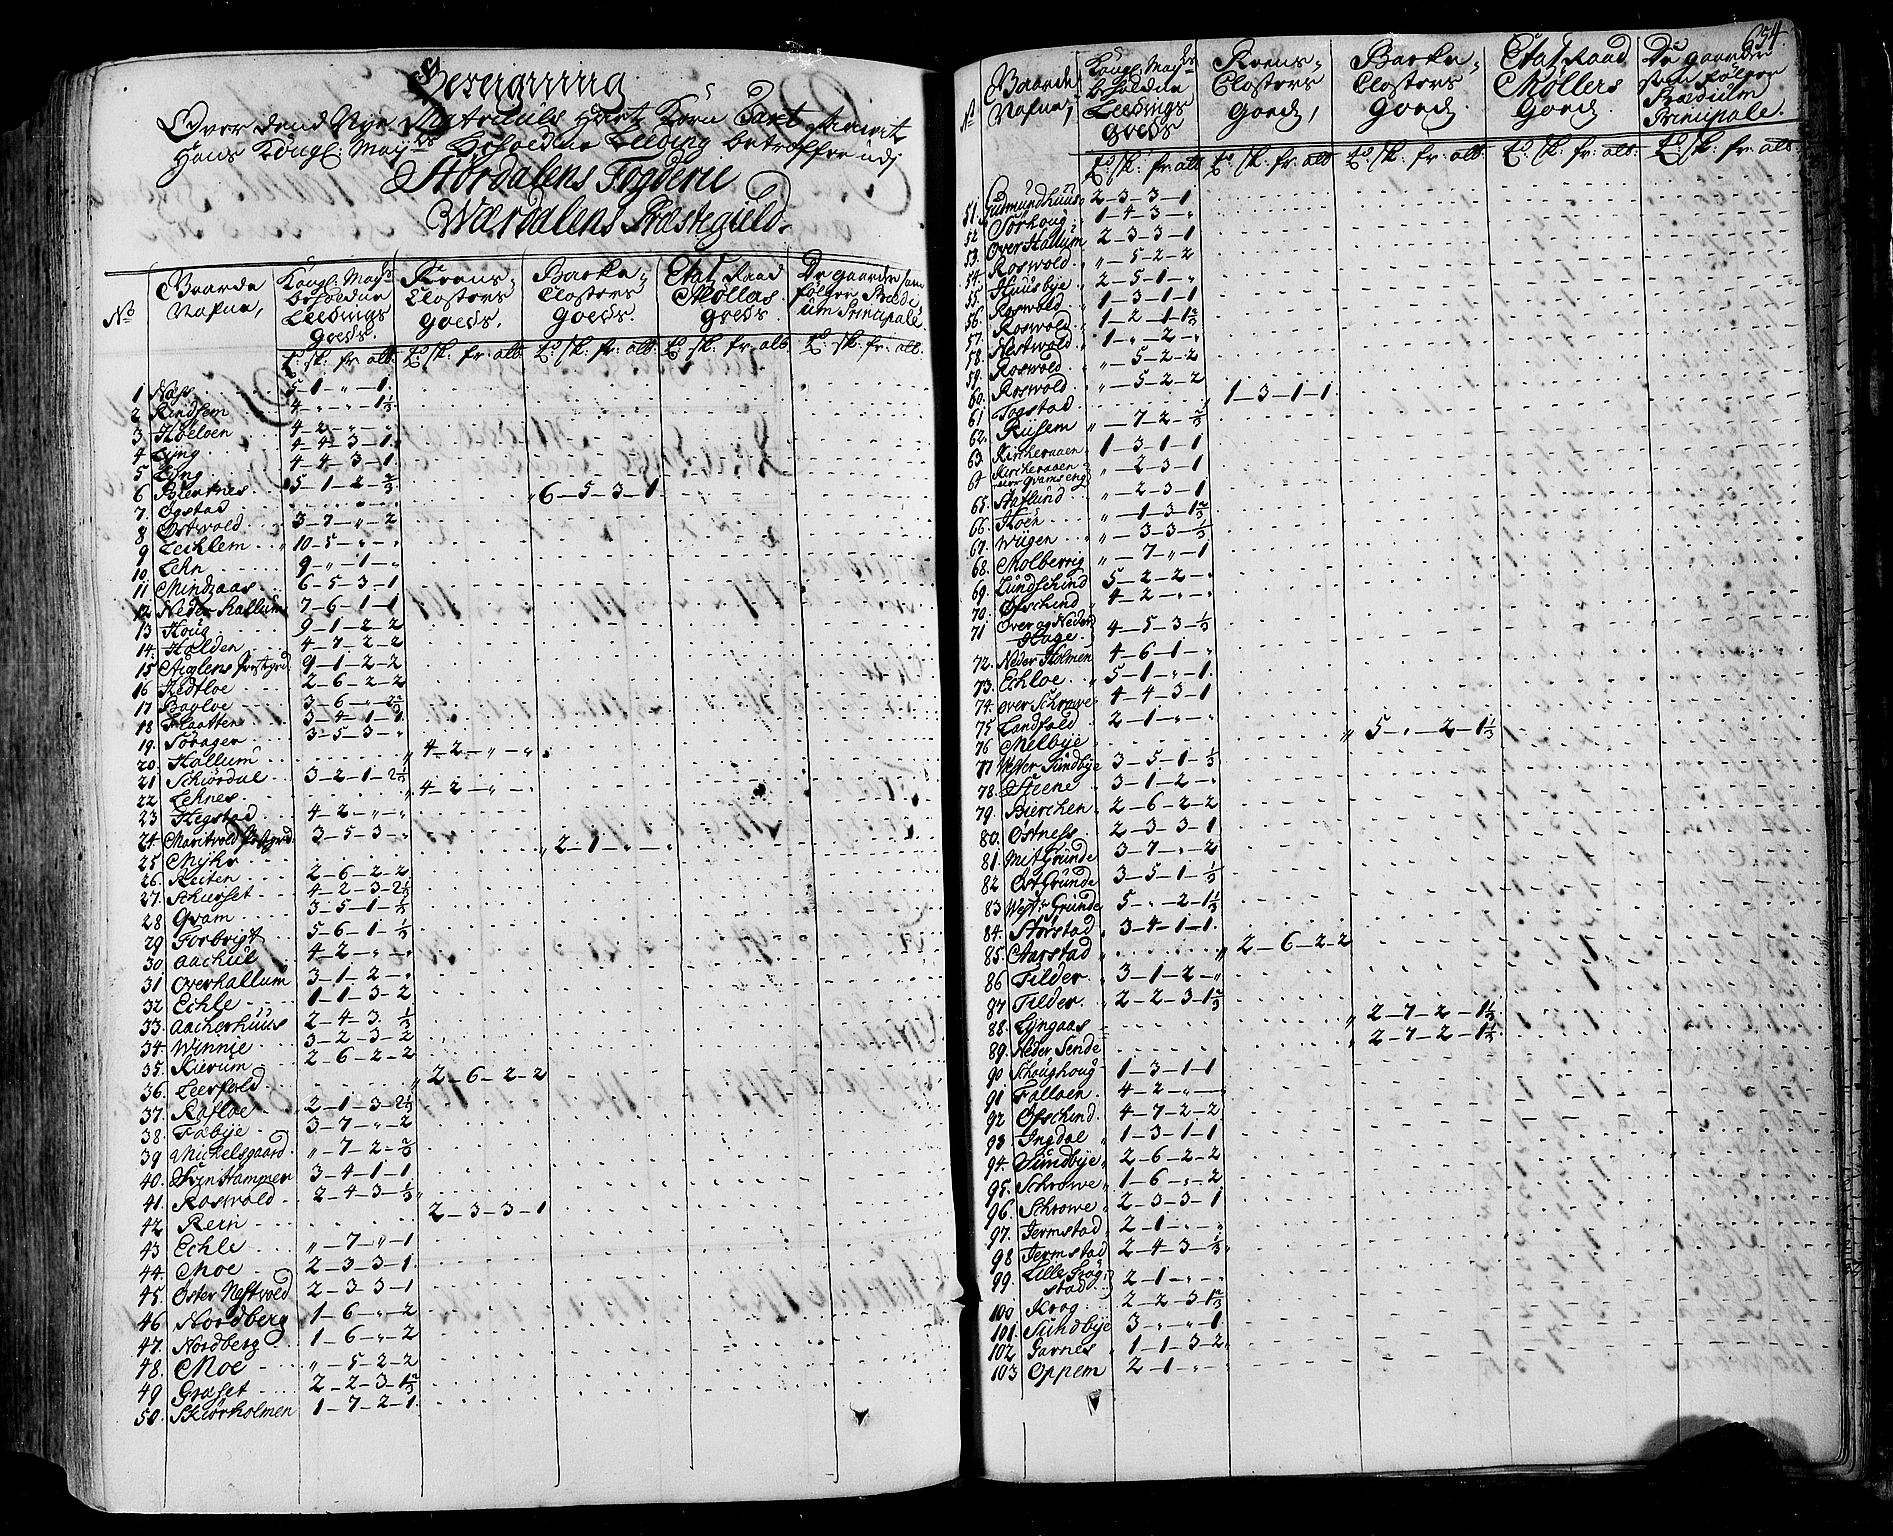 Beregning
Over dend Nye Matriculs Hart Korn Taxt hvorvit
Hans Kongl: Mayts beholdne Leeding betreffer udj
Størdalens Fogderie
Wærdalens Præstegield.
No Gaarde Nafne, Kongl: Mayts beholdne Leedings goeds. Reens Closters goeds. Bache Closters goeds. Etat Raad Møllers goeds De gaarder som følger Prædium Principale.
t: sk: fr: alb. td: sk: fr: alb. td: sk: fr: alb. td: sk: fr: alb. td: sk: fr: alb.
1 Næss 5-1-"-1.
2 Rindsem 4-"-"-1 1/3
3 Hoeloen 4-2-"-"
4 Lÿng 4-4-3-1
5 Lÿng 4-4-3-1
6 Biertnes 5-1-2-2/3
7 Ogstad " 6-5-3-1
8 Østwold 3-7-"-2
9 Lechlem 10-5-"-"
10 Lehn 9-"-1-"
11 Mindzaas 6-5-3-1
12 Neder Hallum 7-6-1-1
13 Houg 9-1-2-2
14 Holden 4-7-2-2
15 Auglens Prestgrd. 9-1-2-2
16 Hedtloe 2-6-2-2
17 Bagloe 3-6-"-2 2/3
18 Flaatten 3-4-1-1
19 Søragen 3-5-3-"
20 Hallum " 4-2-"-"
21 Schiørdal 3-2-1-2 2/3
22 Lehnes " 4-2-"-"
23 Hegstad 4-2-"-"
24 Maritvold Prestgrd. 3-5-3-"
25 Mÿhr " 2-1-"-"
26 Reiten 2-6-2-2
27 Schierset 4-2-3-2 1/3
28 Qvam 3-5-1-1/3
29 Forbrigt 5-6-1-1/3
30 Aachul 4-2-"-"
31 Overhallum 3-1-2-"
32 Echle 1-1-3-2
33 Aacherhuus 2-4-3-1/3
34 Winnie 3-2-3-2
35 Kierum 2-6-2-2
36 Leerfald " 2-6-2-2
37 Kafloe 2-1-3-2 1/3
38 Fæbye 3-7-"-2
39 Michelsgaard "-7-2-2/3
40 Svin Hammer 3-4-1-1
41 Roswold 2-4-3-1/3
42 Rein 2-3-3-1
43 Echle "-7-"-1
44 Moe 2-3-3-1
45 Øster Nestvold 2-3-3-1
46 Nordberg 1-6-"-2
47 Nordberg 1-6-"-2
48 Moe "-5-2-2
49 Græset 2-2-3-1 2/3
50 Skiørholmen 1-7-2-1
654.
No Gaarde Nafne, Kongl: Mayts beholdne Leedings goeds Reens Closters goeds, Bache Closters goeds. Etat Raad Møllers goeds. De gaarder som følger Prædium Principale.
td: sk: fr: alb td: sk: fr: alb td: sk: fr: alb. td: sk: fr: alb. td: sk: fr: alb.
51 Gudmundhuus 2-3-3-1
52 Sørhoug 1-4-3-"
53 Over Hallum 2-3-3-1
54 Roswold "-5-2-2
55 Huusbye 2-5-1-"
56 Roswold 1-3-1-1
57 Roswold 1-2-1-1 2/3
58 Nestwold 1-"-2-"
59 Roswold "-5-2-2
60 Roswold "-5-2-2
61 Togstad 1-3-1-1
62 Rusem "-7-2-2/3
63 Kircheraaen 1-3-1-1
64 Kircheraaen "-2-3-1
65 Aaflund "-2-3-1
66 Hoen "-1-3-1 2/3
67 Wügen "-3-3-1/3
68 Molberrig "-7-"-1
69 Lundschind 5-2-2-"
70 Ofschind 4-2-"-"
71 Over og Neder Hage 4-5-3-1/3
72 Neder Holmen 4-6-1-"
73 Echloe 5-1-"-1
74 Over Schrowe 4-4-3-1
75 Landfald 2-1-"-"
76 Melbye " 5-"-2-1 1/3
77 Wester Sundbÿe 3-5-1-1/3
78 Steene 3-1-2-"
79 Bierchen 2-6-2-2
80 Østness 2-3-3-1
81 Mit Grunde 3-7-"-2
82 Øst Grunde 3-5-1-1/3
83 West: Grunde 5-"-2-1 1/3
84 Storstad 3-4-1-1
85 Aarstad " 2-6-2-2
86 Tilder 3-1-2-"
87 Tilder 2-2-3-1 2/3
88 Lÿngaas " 2-7-2-1 1/3
89 Neder Sende " 2-7-2-1 1/3
90 Schoughoug 1-3-1-1
91 Falloen 4-2-"-"
92 Ofschind 4-7-2-2
93 Ingdal 1-3-1-1
94 Sundbÿe 2-6-2-2
95 Schrowe 1-6-"-2
96 Schrowe 2-3-3-1
97 Jermstad 2-1-"-"
98 Jermstad 2-4-3-1/3
99 Lille Trøgstad 2-1-"-"
100 Krog 2-2-3-1 2/3
101 Sundbÿe 3-"-"-1
102 Garnes 1-1-3-2
103 Oppem 2-1-"-"